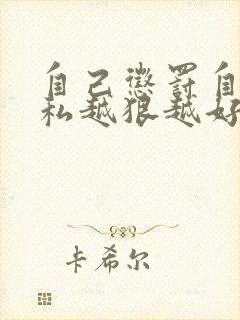 自己惩罚自
私越狠越好
卡希尔